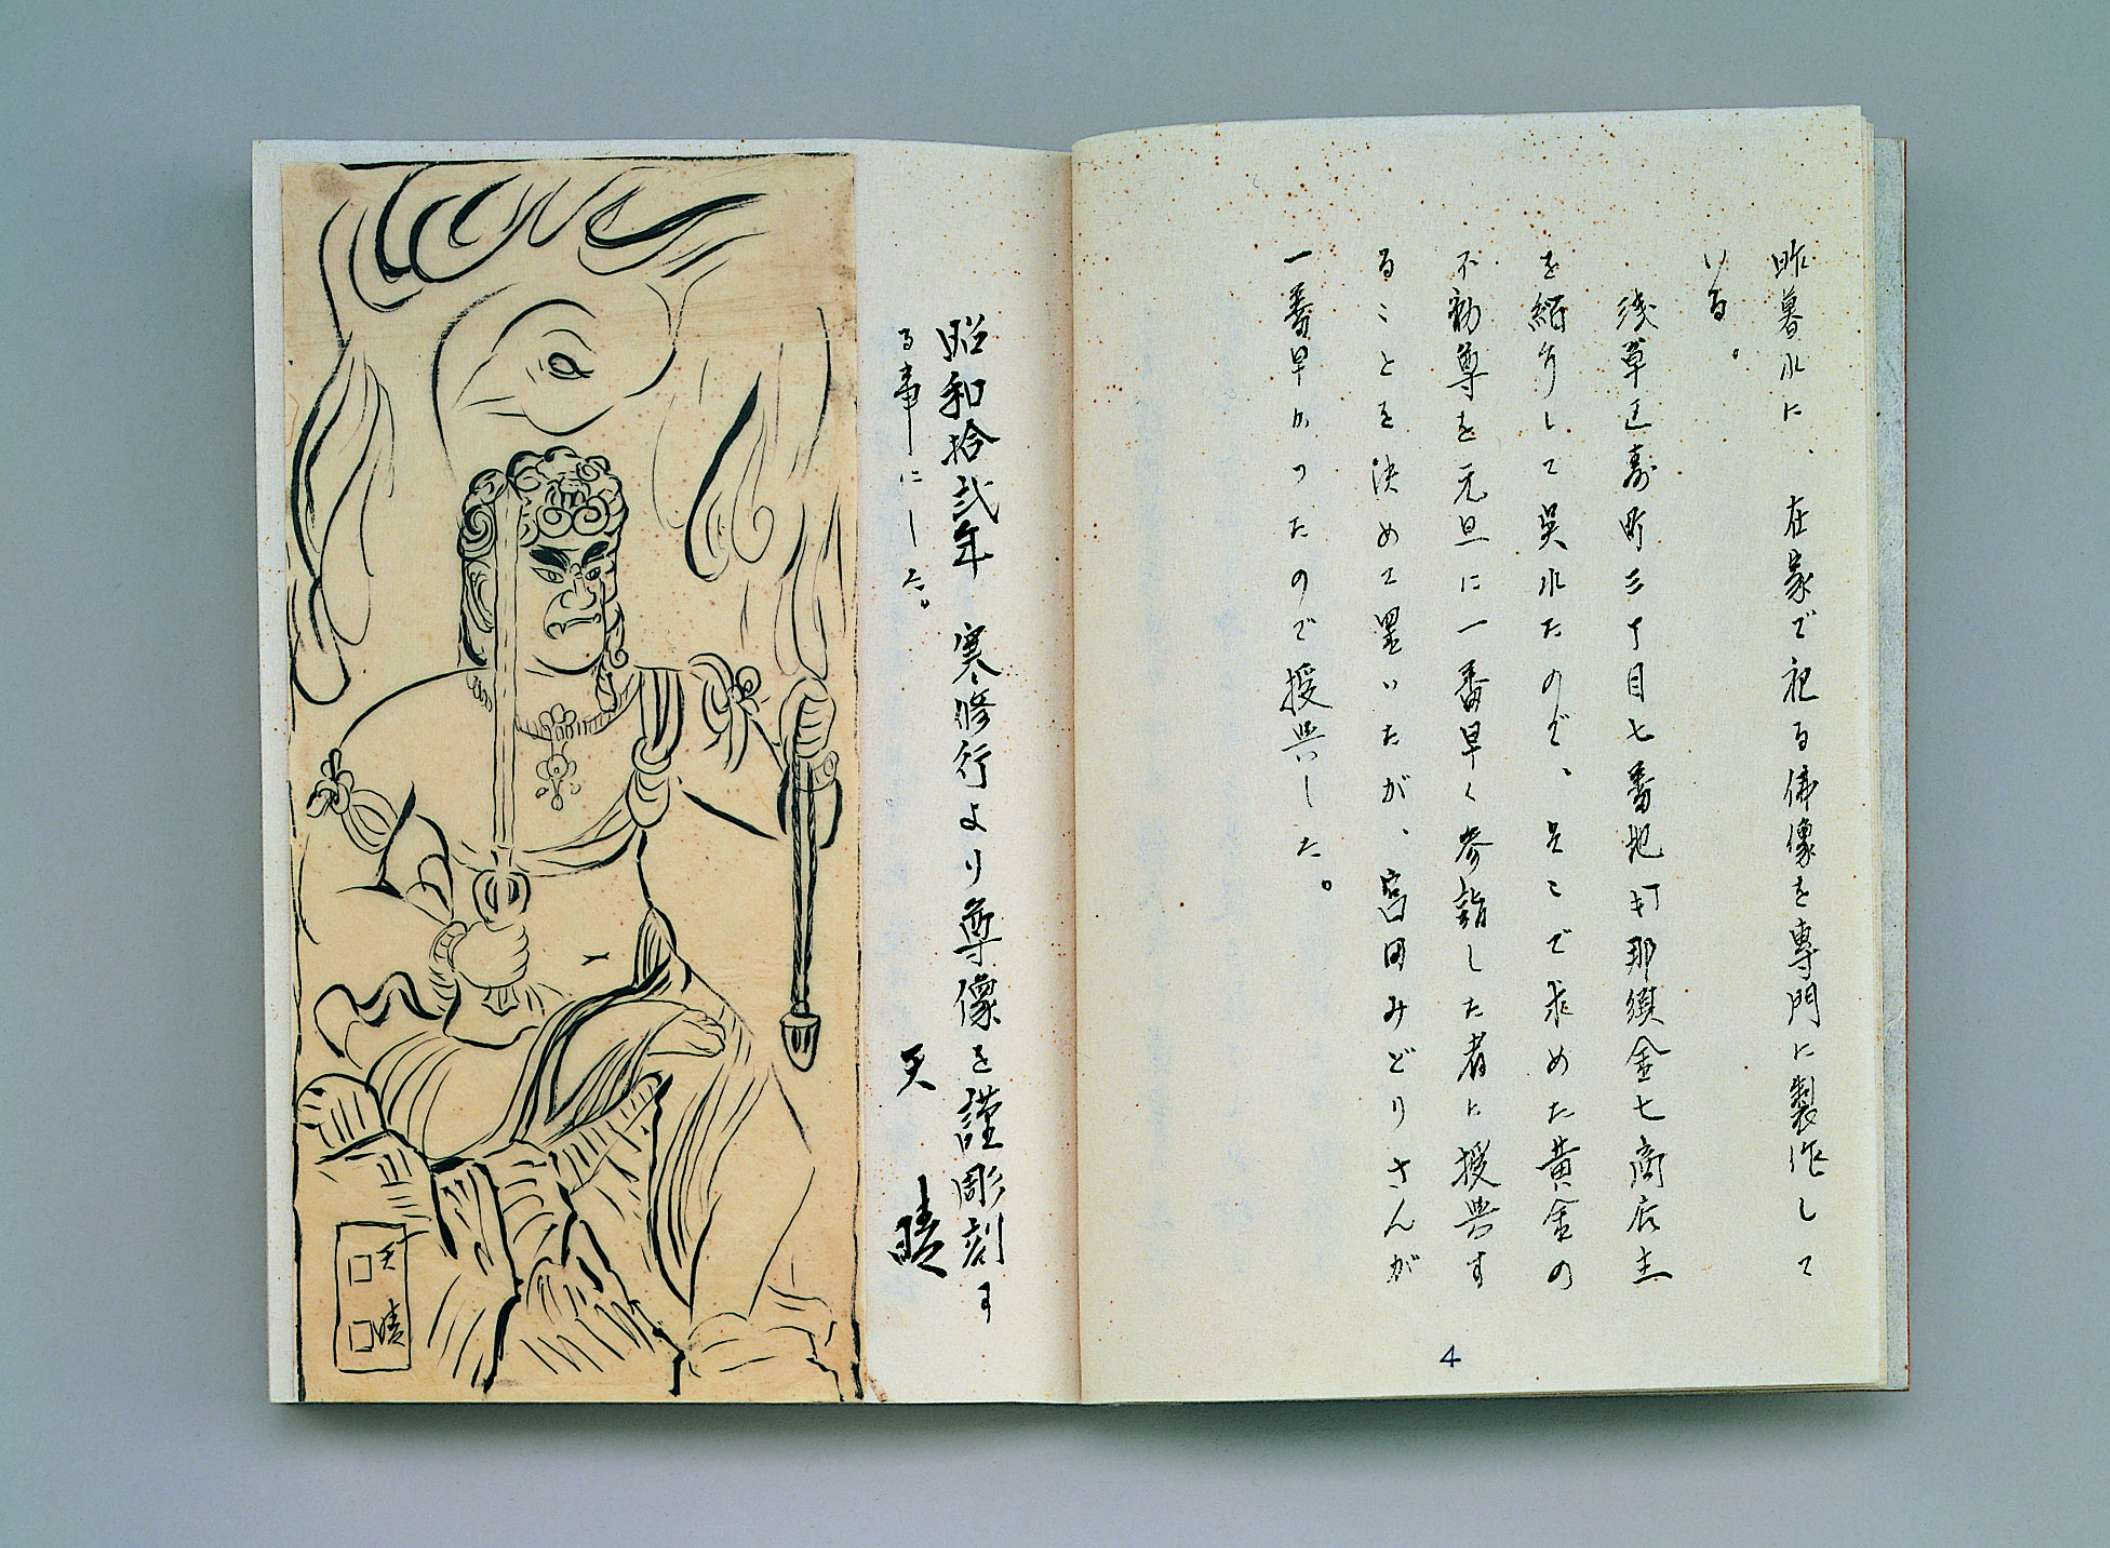 昨暮水に、在家で祀る佛像を専門に製作して
いる。
浅草区寿町三丁目七番地 那須金七商店主
を紹介して呉れたので、そこで求めた黄金の
不動尊を元旦に一番早く参詣した者に授與す
ることを決めて置いたが、宮田みどりさんが
一番早かったので授與した。
4
昭和拾弐年 寒修行より尊像を謹彫刻す
る事にした。
天晴
天晴